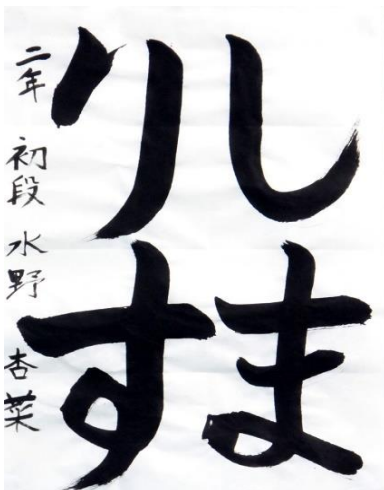 しま
りす
二年 初段 水野 杏菜